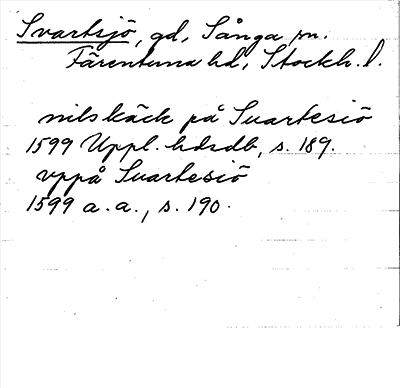 Svartsjö, gd, Sånga sn.
Färentuna hd, Stockh. l.
nils käck på Suartesiö
1599 Uppl. hdsdb, s. 189.
vppå Suartesiö
1599 a. a., s. 190.